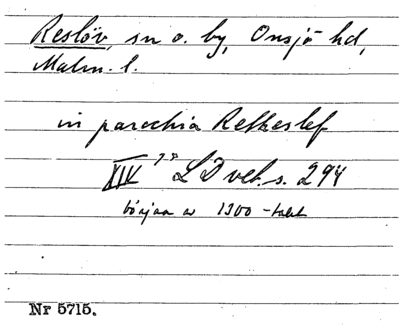 Reslöv, sn o. by, Onsjö hd,
Malm. l.
in parochia Retheslef
XIV LD vet. s. 294
början av 1300-talet
Nr 5715.